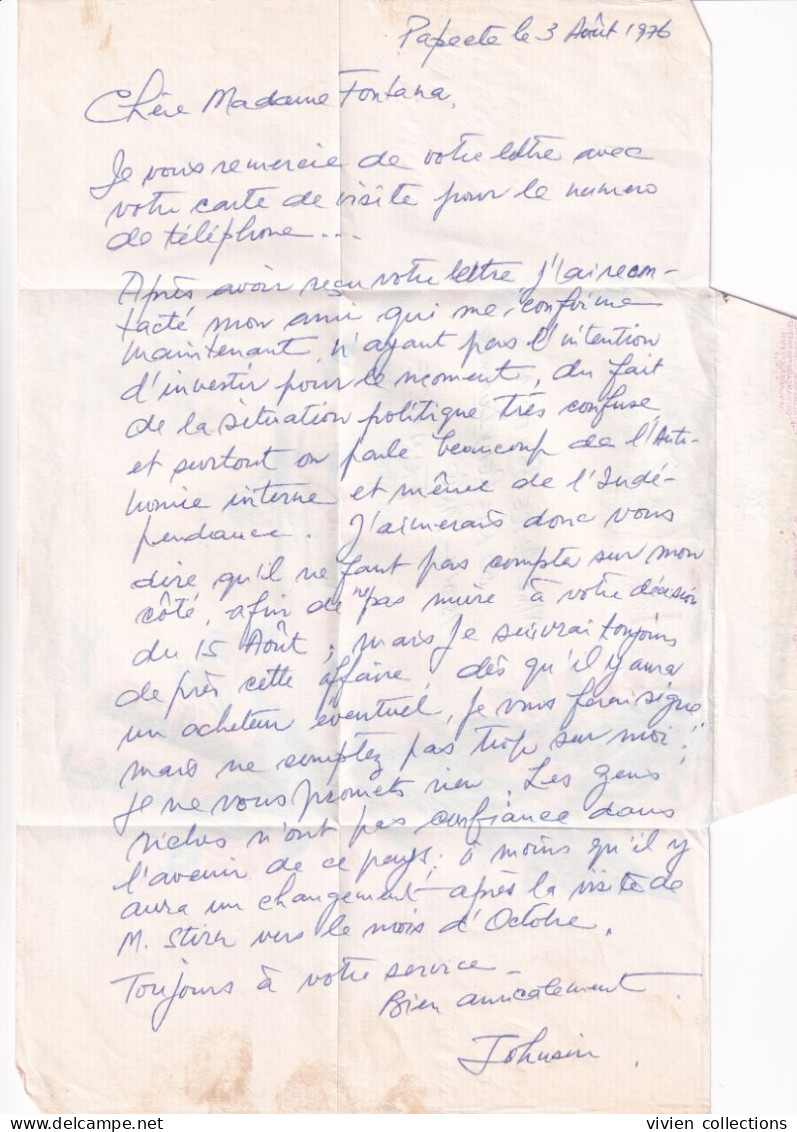 Papeete le 3 Août 1976
Chère Madame Fontana,
Je vous remercie de votre lettre avec
votre carte de visite pour le numero
de téléphone...
Après avoir reçu votre lettre j'ai recon-
tacté mon ami qui me confirme
maintenant, n'ayant pas l'intention
d'investir pour le moment, du fait
de la situation politique très confuse,
et surtout on parle beaucoup de l'Auto-
nomie interne et même de l'Indé-
pendance. J'aimerais donc vous
dire qu'il ne faut pas compter sur mon
côté, afin de ne pas nuire à votre décision
du 15 Août ; mais je suivrai toujours
de près cette affaire, dès qu'il y aura
un acheteur éventuel, je vous ferai signe
mais ne comptez pas trop sur moi ;
je ne vous promets rien. Les gens
riches n'ont pas confiance dans
l'avenir de ce pays ; à moins qu'il y
aura un changement après la visite de
M. Stirn vers le mois d'Octobre.
Toujours à votre service –
Bien amicalement.
vivien collections